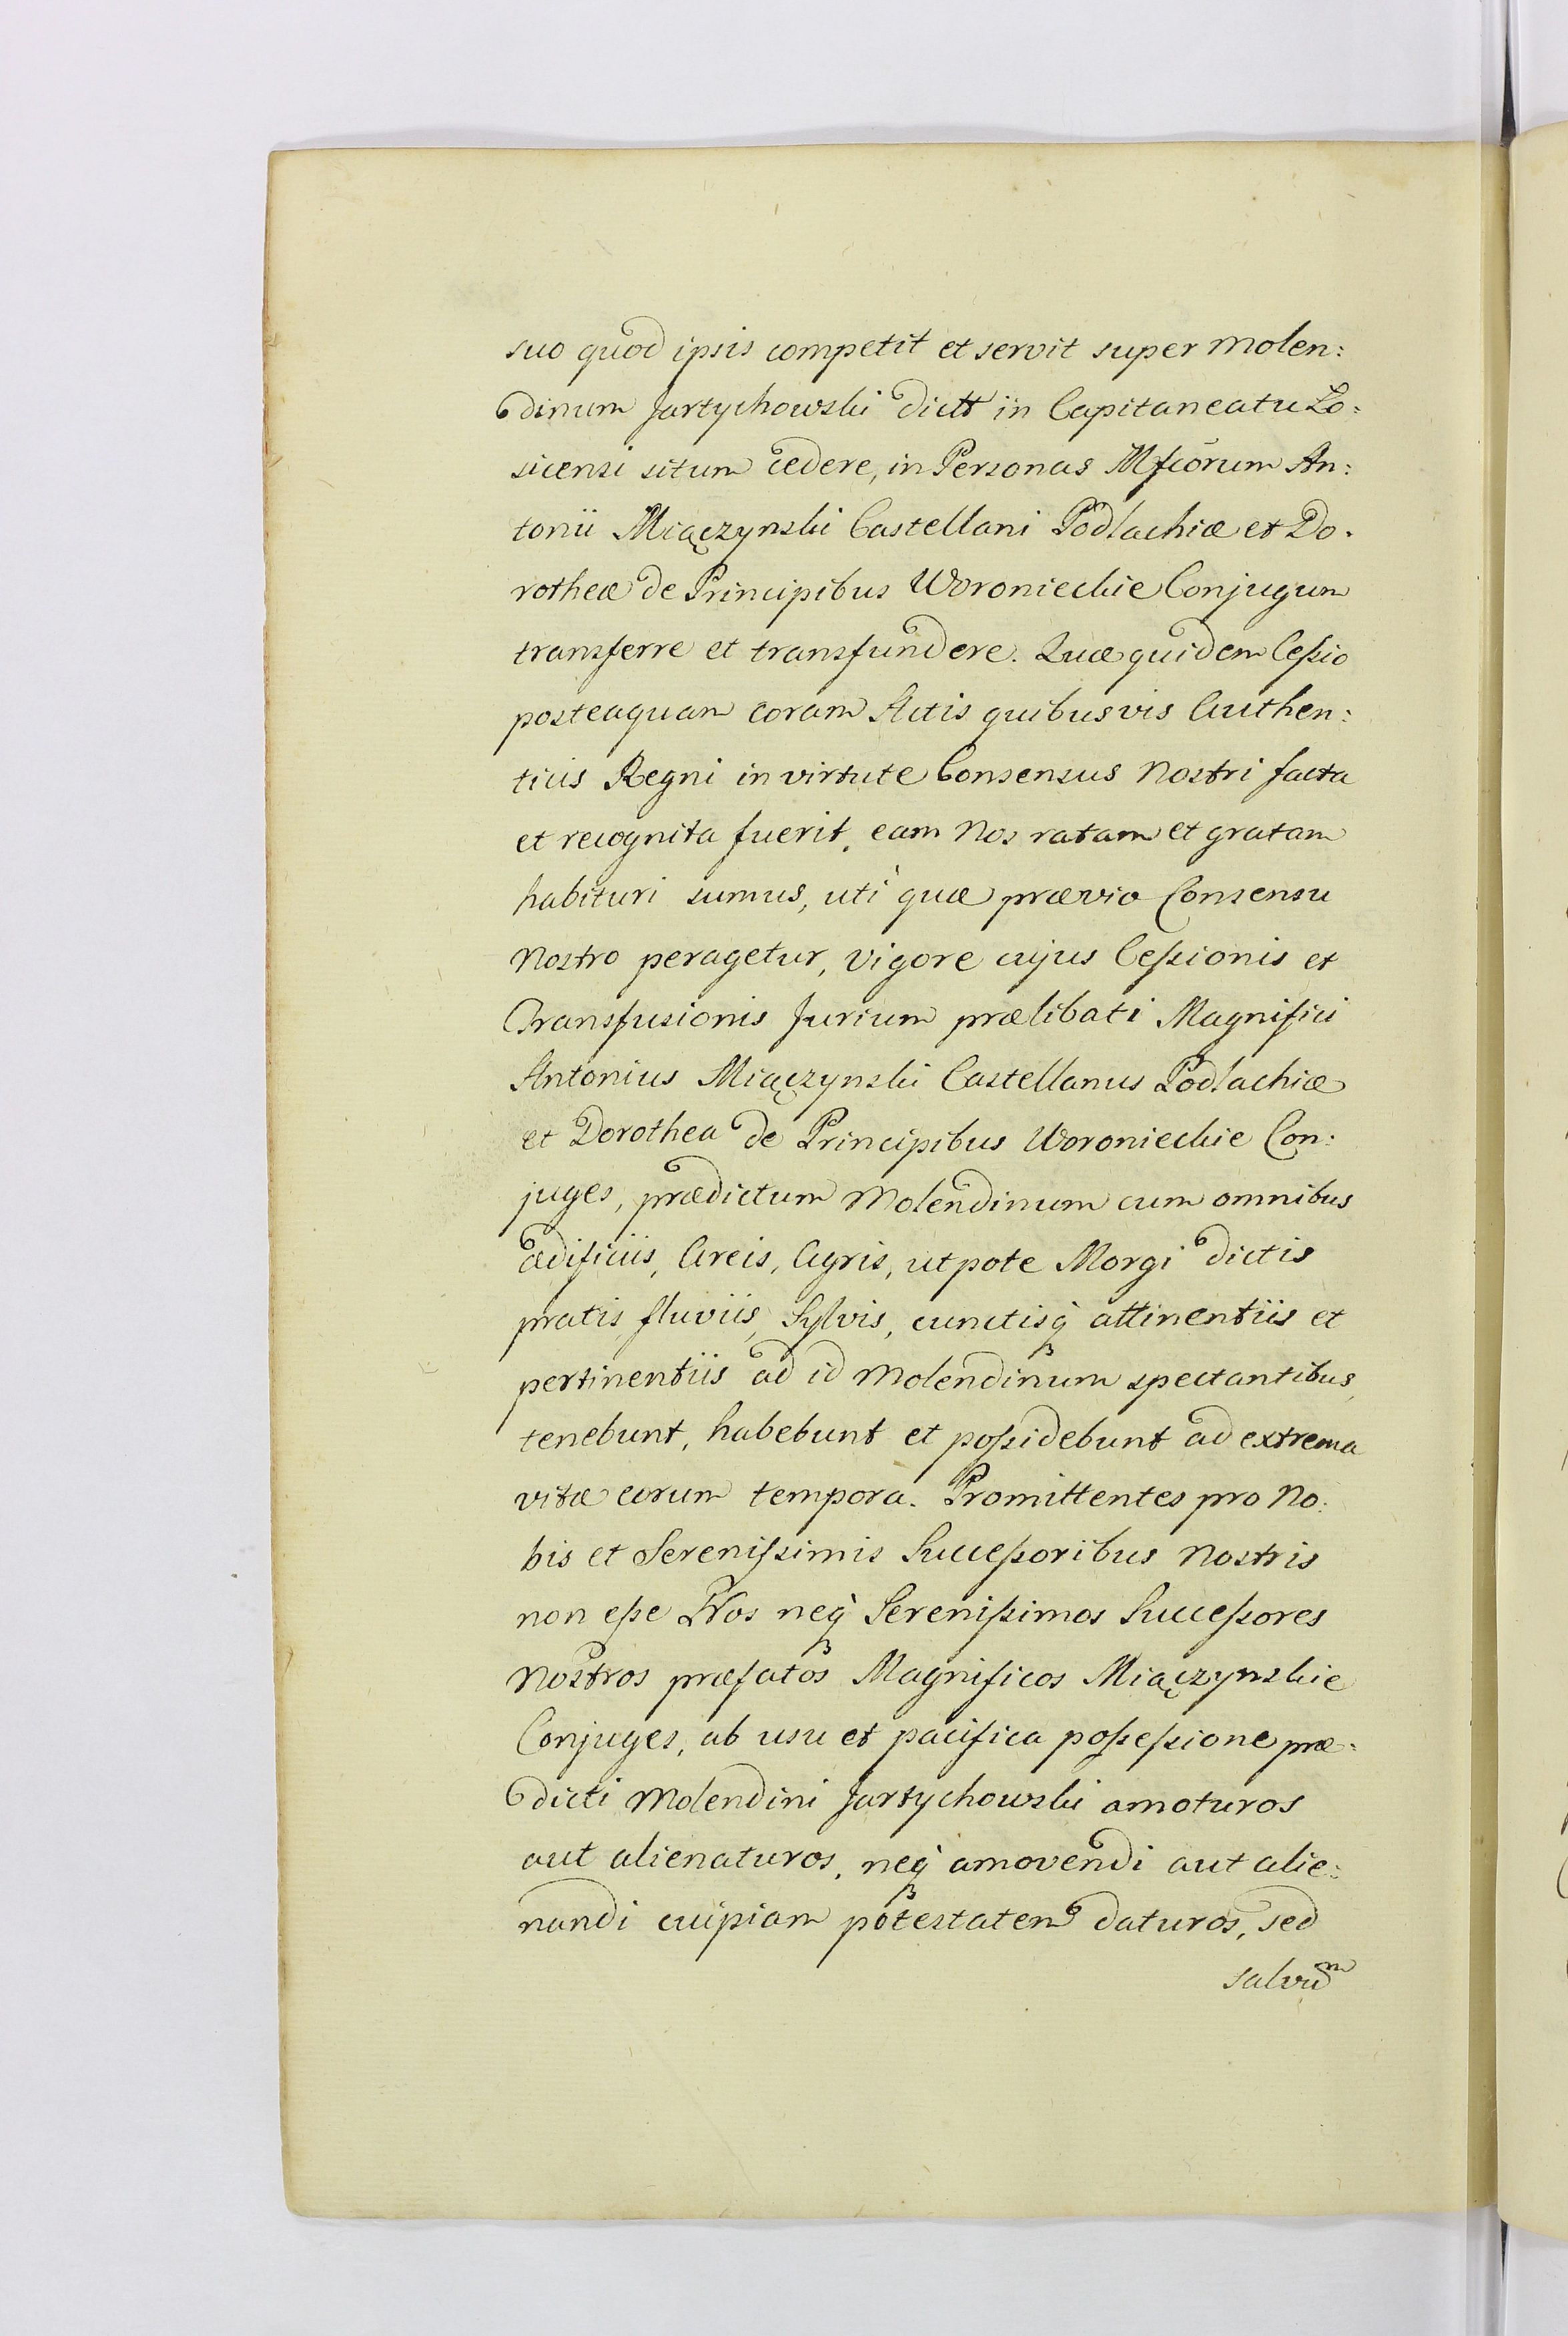 suo quod ipsis competit et servit super molen:
dinum Jartychowski dictt in Capitaneatu Lo:
sicensi situm cedere, in Personas Mfcorum An:
tonii Miączynski Castellani Podlachiæ et Do:
rotheæ de Principibus Woronieckie Conjugum
transferre et transfundere. Quæ quidem Cessio
posteaquam coram Actis quibusvis Authen:
ticis Regni in virtute Consensus Nostri facta
et recognita fuerit, eam Nos ratam et gratam
habituri sumus, uti quæ prævio Consensu
Nostro peragetur, vigore cujus Cessionis et
Transfusionis Jurium prælibati Magnifici
Antonius Miączynski Castellanus Podlachiæ
et Dorothea de Principibus Woronieckie Con:
juges, prædictum Molendinum cum omnibus
ædificiis, Areis, Agris, utpote Morgi dictis
pratis, fluviis, Sylvis, cunctisq̀ attinentiis et
pertinentiis ad id Molendinum spectantibus,
tenebunt, habebunt et possidebunt ad extrema
vitæ eorum tempora. Promittentes pro No:
bis et Serenissimis Successoribus Nostris
non esse Nos neq̀ Serenissimos Successores
Nostros præfatos Magnificos Miączynskie
Conjuges, ab usu et pacifica possessione præ:
dicti Molendini Jartychowski amoturos
aut alienaturos, neq̀ amovendi aut alie:
nandi cuipiam potestatem daturos, sed
salvũm